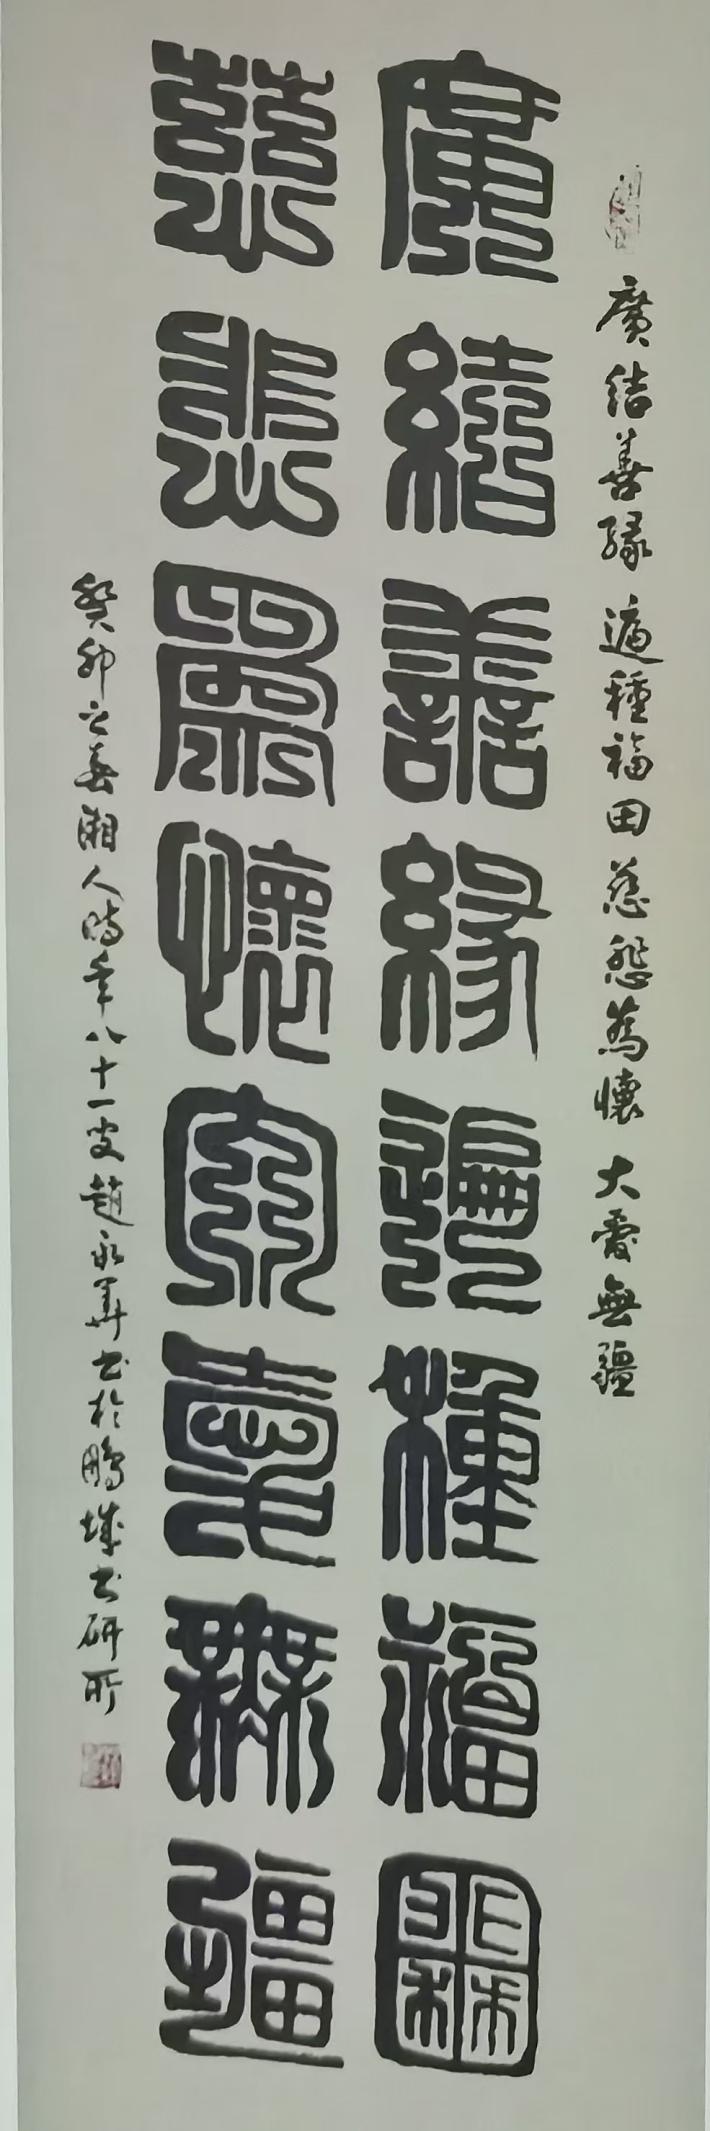 廣結善緣遍種福田慈悲為懷大愛無疆
廣結善緣遍種福田
慈悲為懷大愛無疆
癸卯之春湘人時年八十一叟趙永華书於鹏城书研所